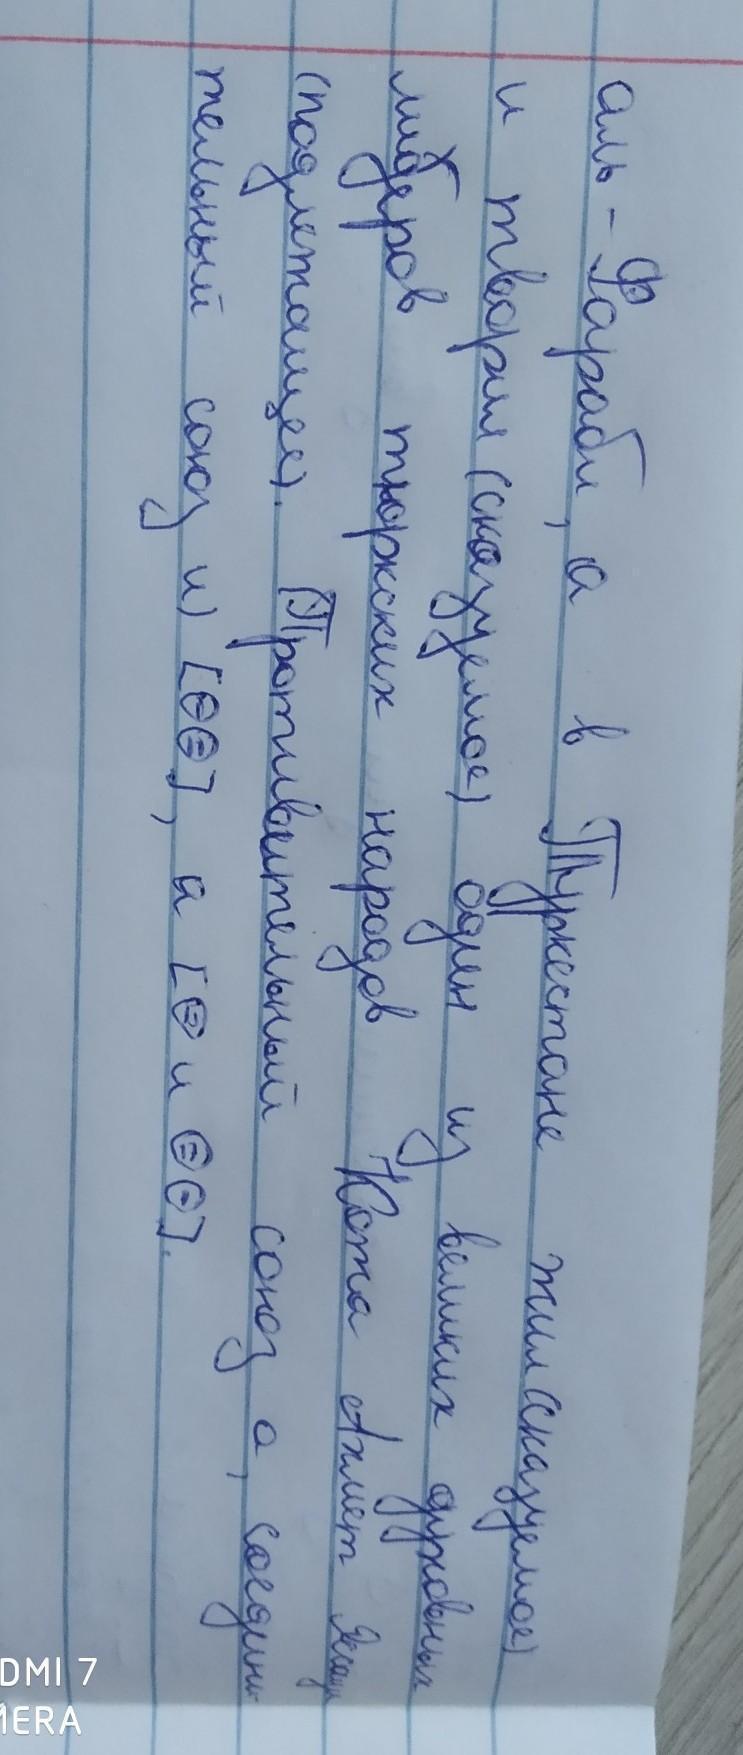 аль-Фараби, а в Туркестане жил(сказуемое)
и творил(сказуемое) один из великих духовных
лидеров тюркских народов Кожа Ахмет Ясауи
(подлежащее). (Противительный союз а, соедини-
тельный союз и) [ΘΘ], а [Θ и ΘΘ].
REDMI 7
CAMERA